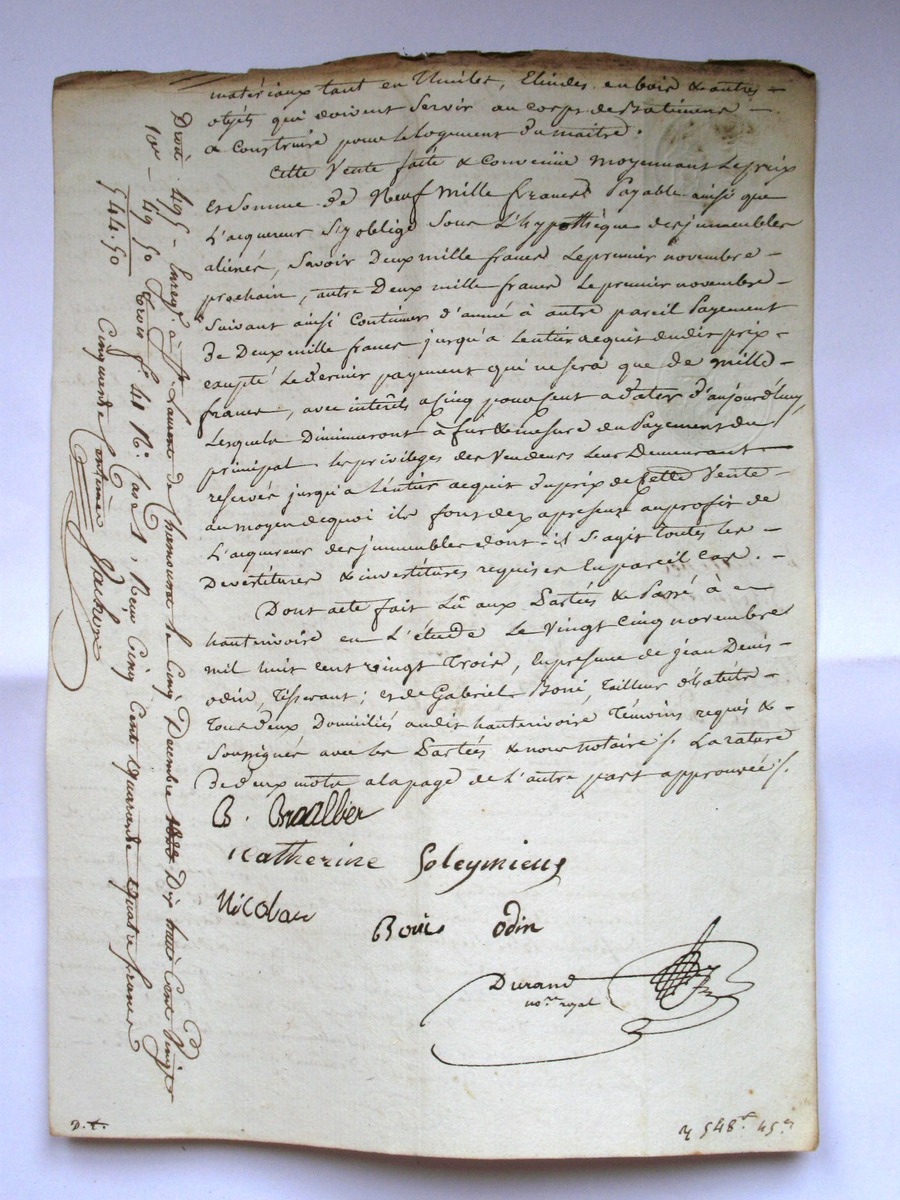 matériaux tant en Thuiles, Etindes, en bois & autres -
objéts qui doivent Servir au corps de Batiment -
a Construire pour le logement du maitre.
Cette Vente faite & Convenüe moyennant Le prix
et Somme de Neuf Mille francs Payable ainsi que
L'acquereur S'y oblige Sous L'hypothèque des jmmeubles
aliénés, Savoir Deux mille francs Le premier novembre -
prochain, autre Deux mille francs Le premier novembre -
Suivant ainsi Continuer d'année à autre pareil Payement
De Deux mille francs jusqu'à Lentier acquit dudit prix -
éxcepté Le dernier payement qui ne sera que de mille -
francs, avec intérêts a Cinq pour cent a dater d'aujourd'huy
Lesquels Diminuront à fur & mesure du Payement du
principal les privileges des Vendeurs Leur Demeurant -
reservés jusqu'a Lentier acquit du prix de Cette Vente -
au moyen de quoi ils font dez apresent au profit de
L'acquereur des jmmeubles dont il S'agit toutes les -
Devestitures & investitures requises En pareil Cas. -
Dont acte fait Lû aux Partiés & Passé à -
hauterivoire en L'étude Le Vingt Cinq novembre
mil huit cent vingt Trois, En présence de jean Denis -
odin, Tisserant; et de Gabriel Boni, Tailleur d'habits -
Tous deux Domiciliés audit hauterivoire Témoins requis & -
Soussignés avec les Partiés & nous notaire /. La rature
De deux mots a la page de L'autre part approuvée /.
Catherine Soleymieux
Nicolas
odin
Durand
no.re royal
Droit 495 - Enreg.é à St. Laurent de Chamousset le Cinq Décembre Dix huit Cent Vingt
10e - 49 50 trois f.o Cases 1, Reçu Cinq Cent Quarante Quatre francs
544.50 Cinquante Centimes
D.t. 548 45